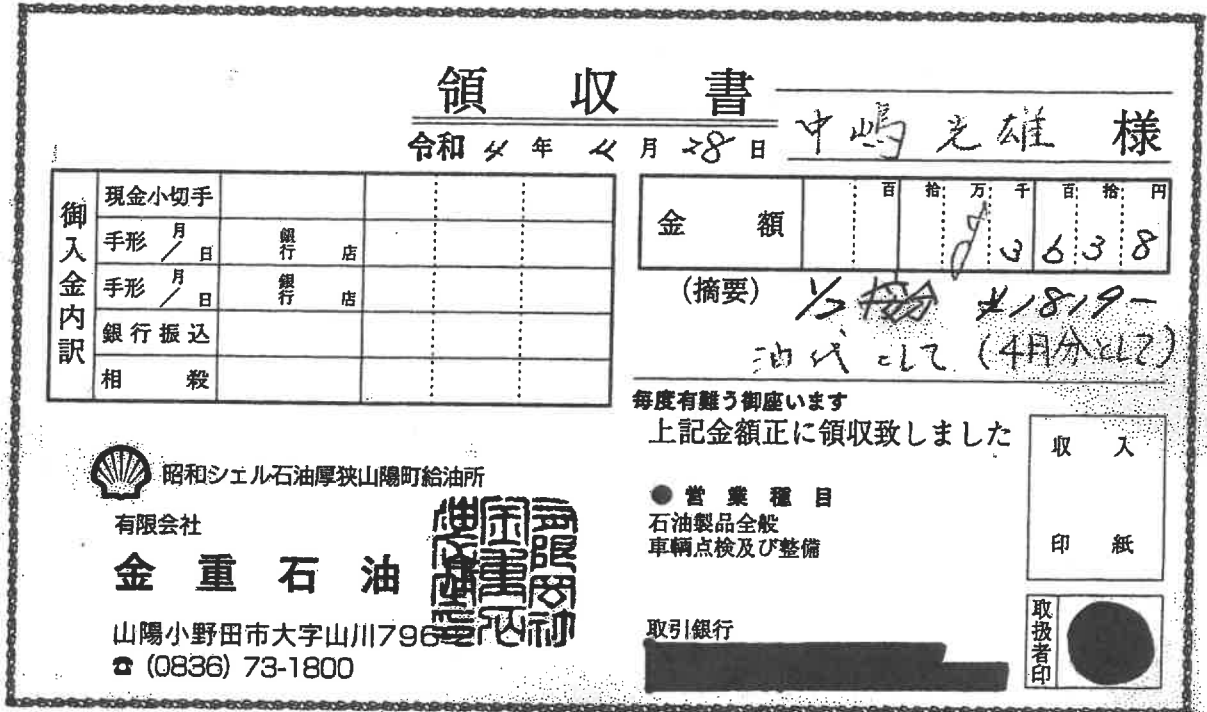 領収書
令和 4 年 4 月 28 日
中嶋 光雄 様
御入金内訳
現金小切手
手形 月/日 銀行 店
手形 月/日 銀行 店
銀行振込
相殺
金額
百 拾 万 千 百 拾 円
3 6 3 8
(摘要) 1/2 按分 ¥1819-
油代として(4月分として)
毎度有難う御座います
上記金額正に領収致しました
収入
印紙
昭和シェル石油厚狭山陽町給油所
有限会社
金重石油
山陽小野田市大字山川796-2
☎(0836)73-1800
●営業種目
石油製品全般
車輌点検及び整備
取引銀行
取扱者印